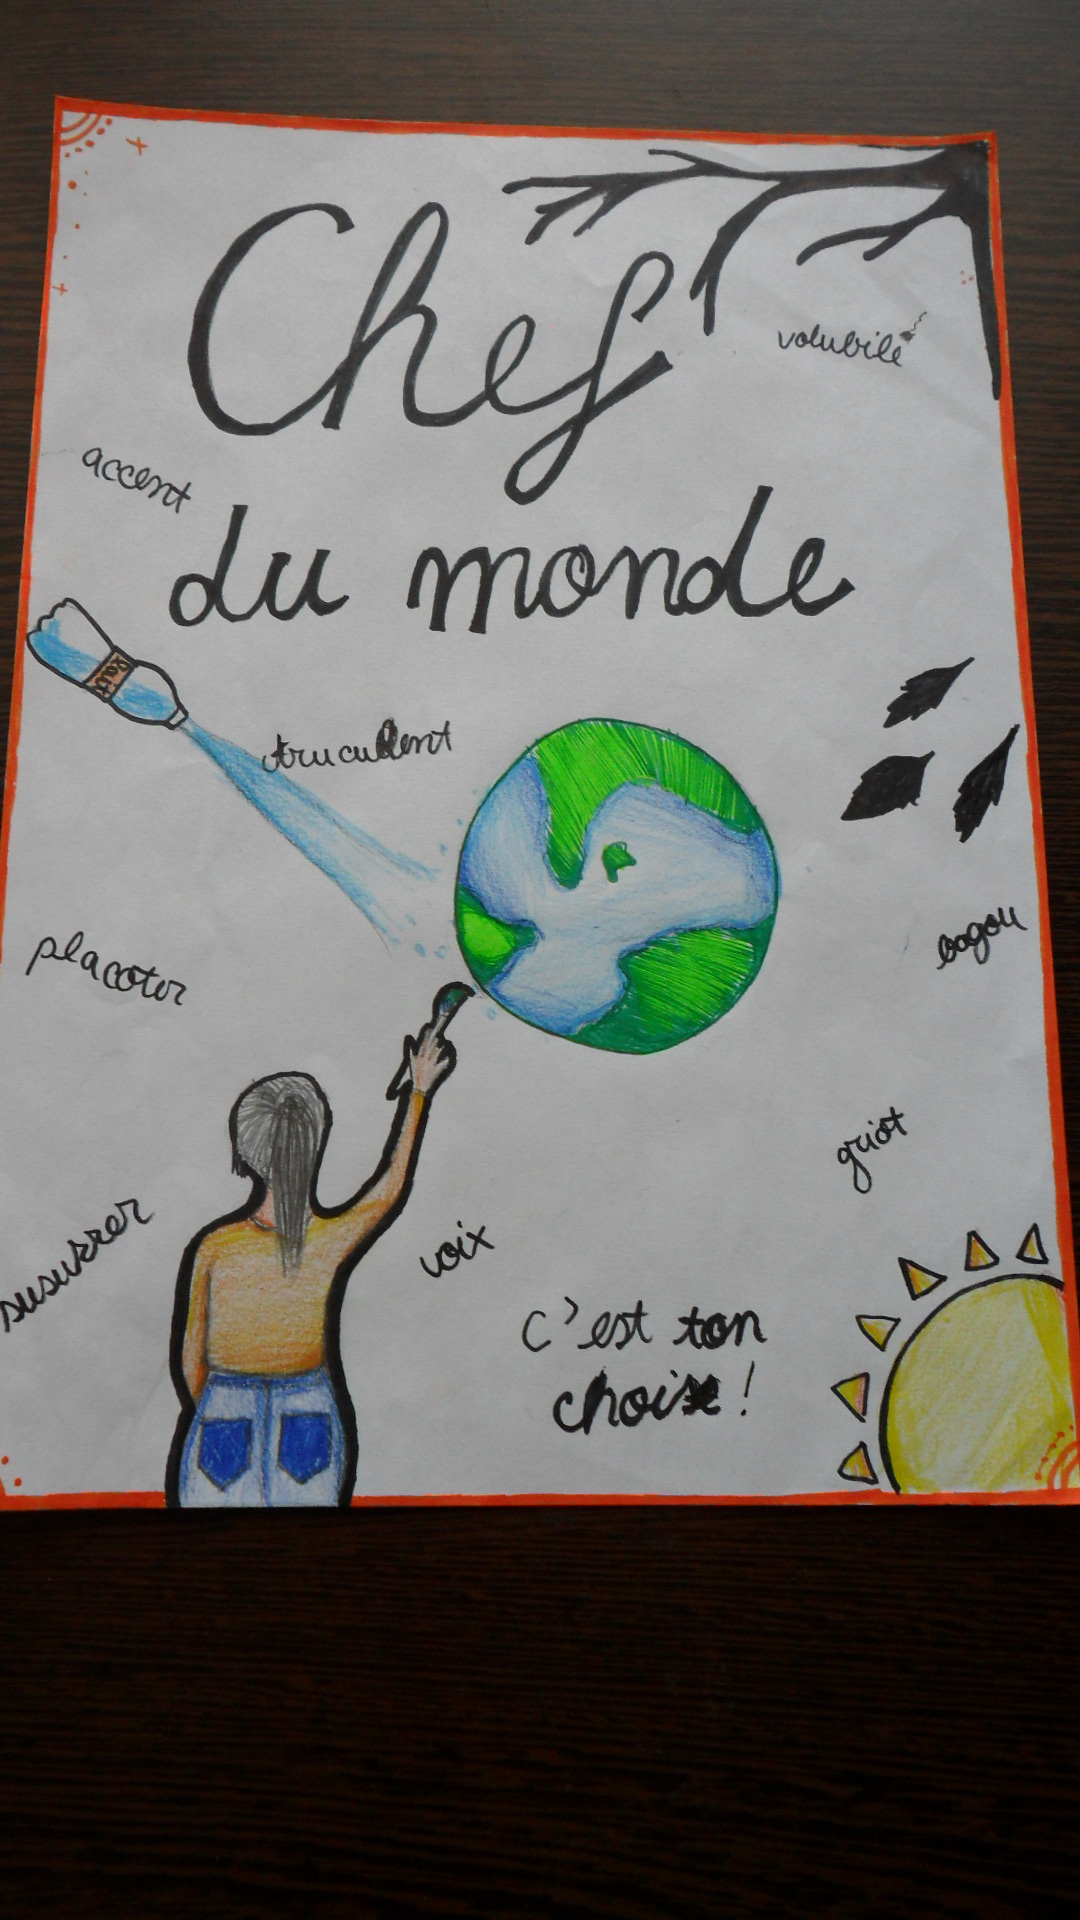 Chef
volubile
accent
du monde
truculent
placoter
bagou
griot
susurrer
voix
c'est ton
choix !